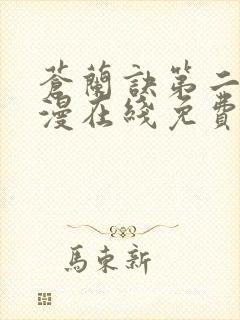 蒼蘭訣第二
漫在綫免費
馬東新